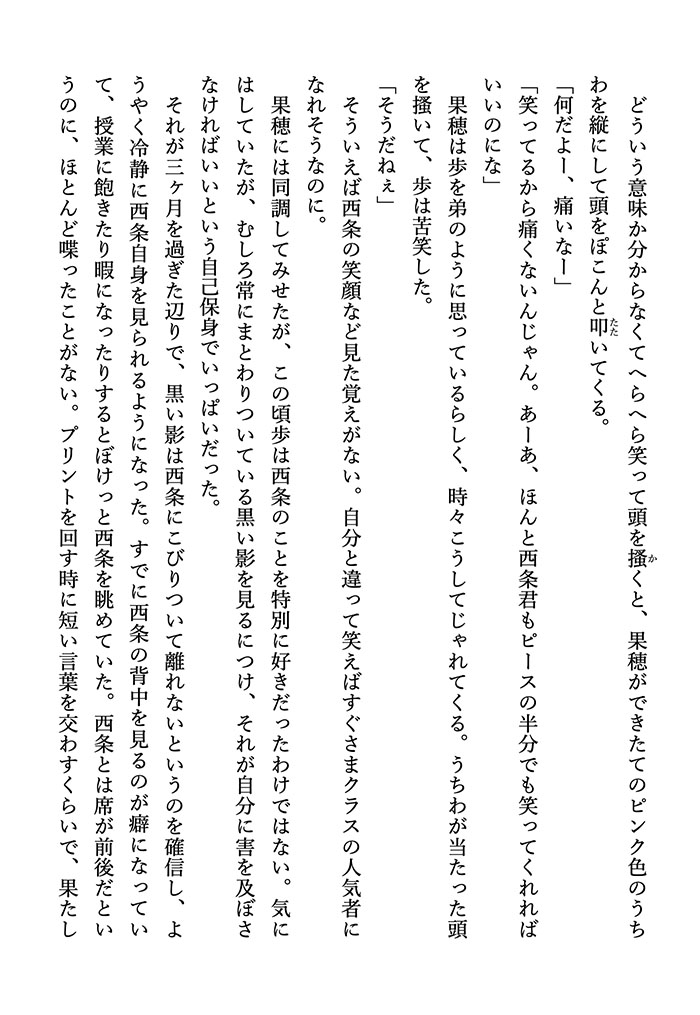 どういう意味か分からなくてへらへら笑って頭を掻くと、果穂ができたてのピンク色のうち
わを縦にして頭をぽこんと叩いてくる。
「何だよー、痛いなー」
「笑ってるから痛くないんじゃん。あーあ、ほんと西条君もピースの半分でも笑ってくれれば
いいのにな」
果穂は歩を弟のように思っているらしく、時々こうしてじゃれてくる。うちわが当たった頭
を掻いて、歩は苦笑した。
「そうだねぇ」
そういえば西条の笑顔など見た覚えがない。自分と違って笑えばすぐさまクラスの人気者に
なれそうなのに。
果穂には同調してみせたが、この頃歩は西条のことを特別に好きだったわけではない。気に
はしていたが、むしろ常にまとわりついている黒い影を見るにつけ、それが自分に害を及ぼさ
なければいいという自己保身でいっぱいだった。
それが三ヶ月を過ぎた辺りで、黒い影は西条にこびりついて離れないというのを確信し、よ
うやく冷静に西条自身を見られるようになった。すでに西条の背中を見るのが癖になってい
て、授業に飽きたり暇になったりするとぼけっと西条を眺めていた。西条とは席が前後だとい
うのに、ほとんど喋ったことがない。プリントを回す時に短い言葉を交わすくらいで、果たし